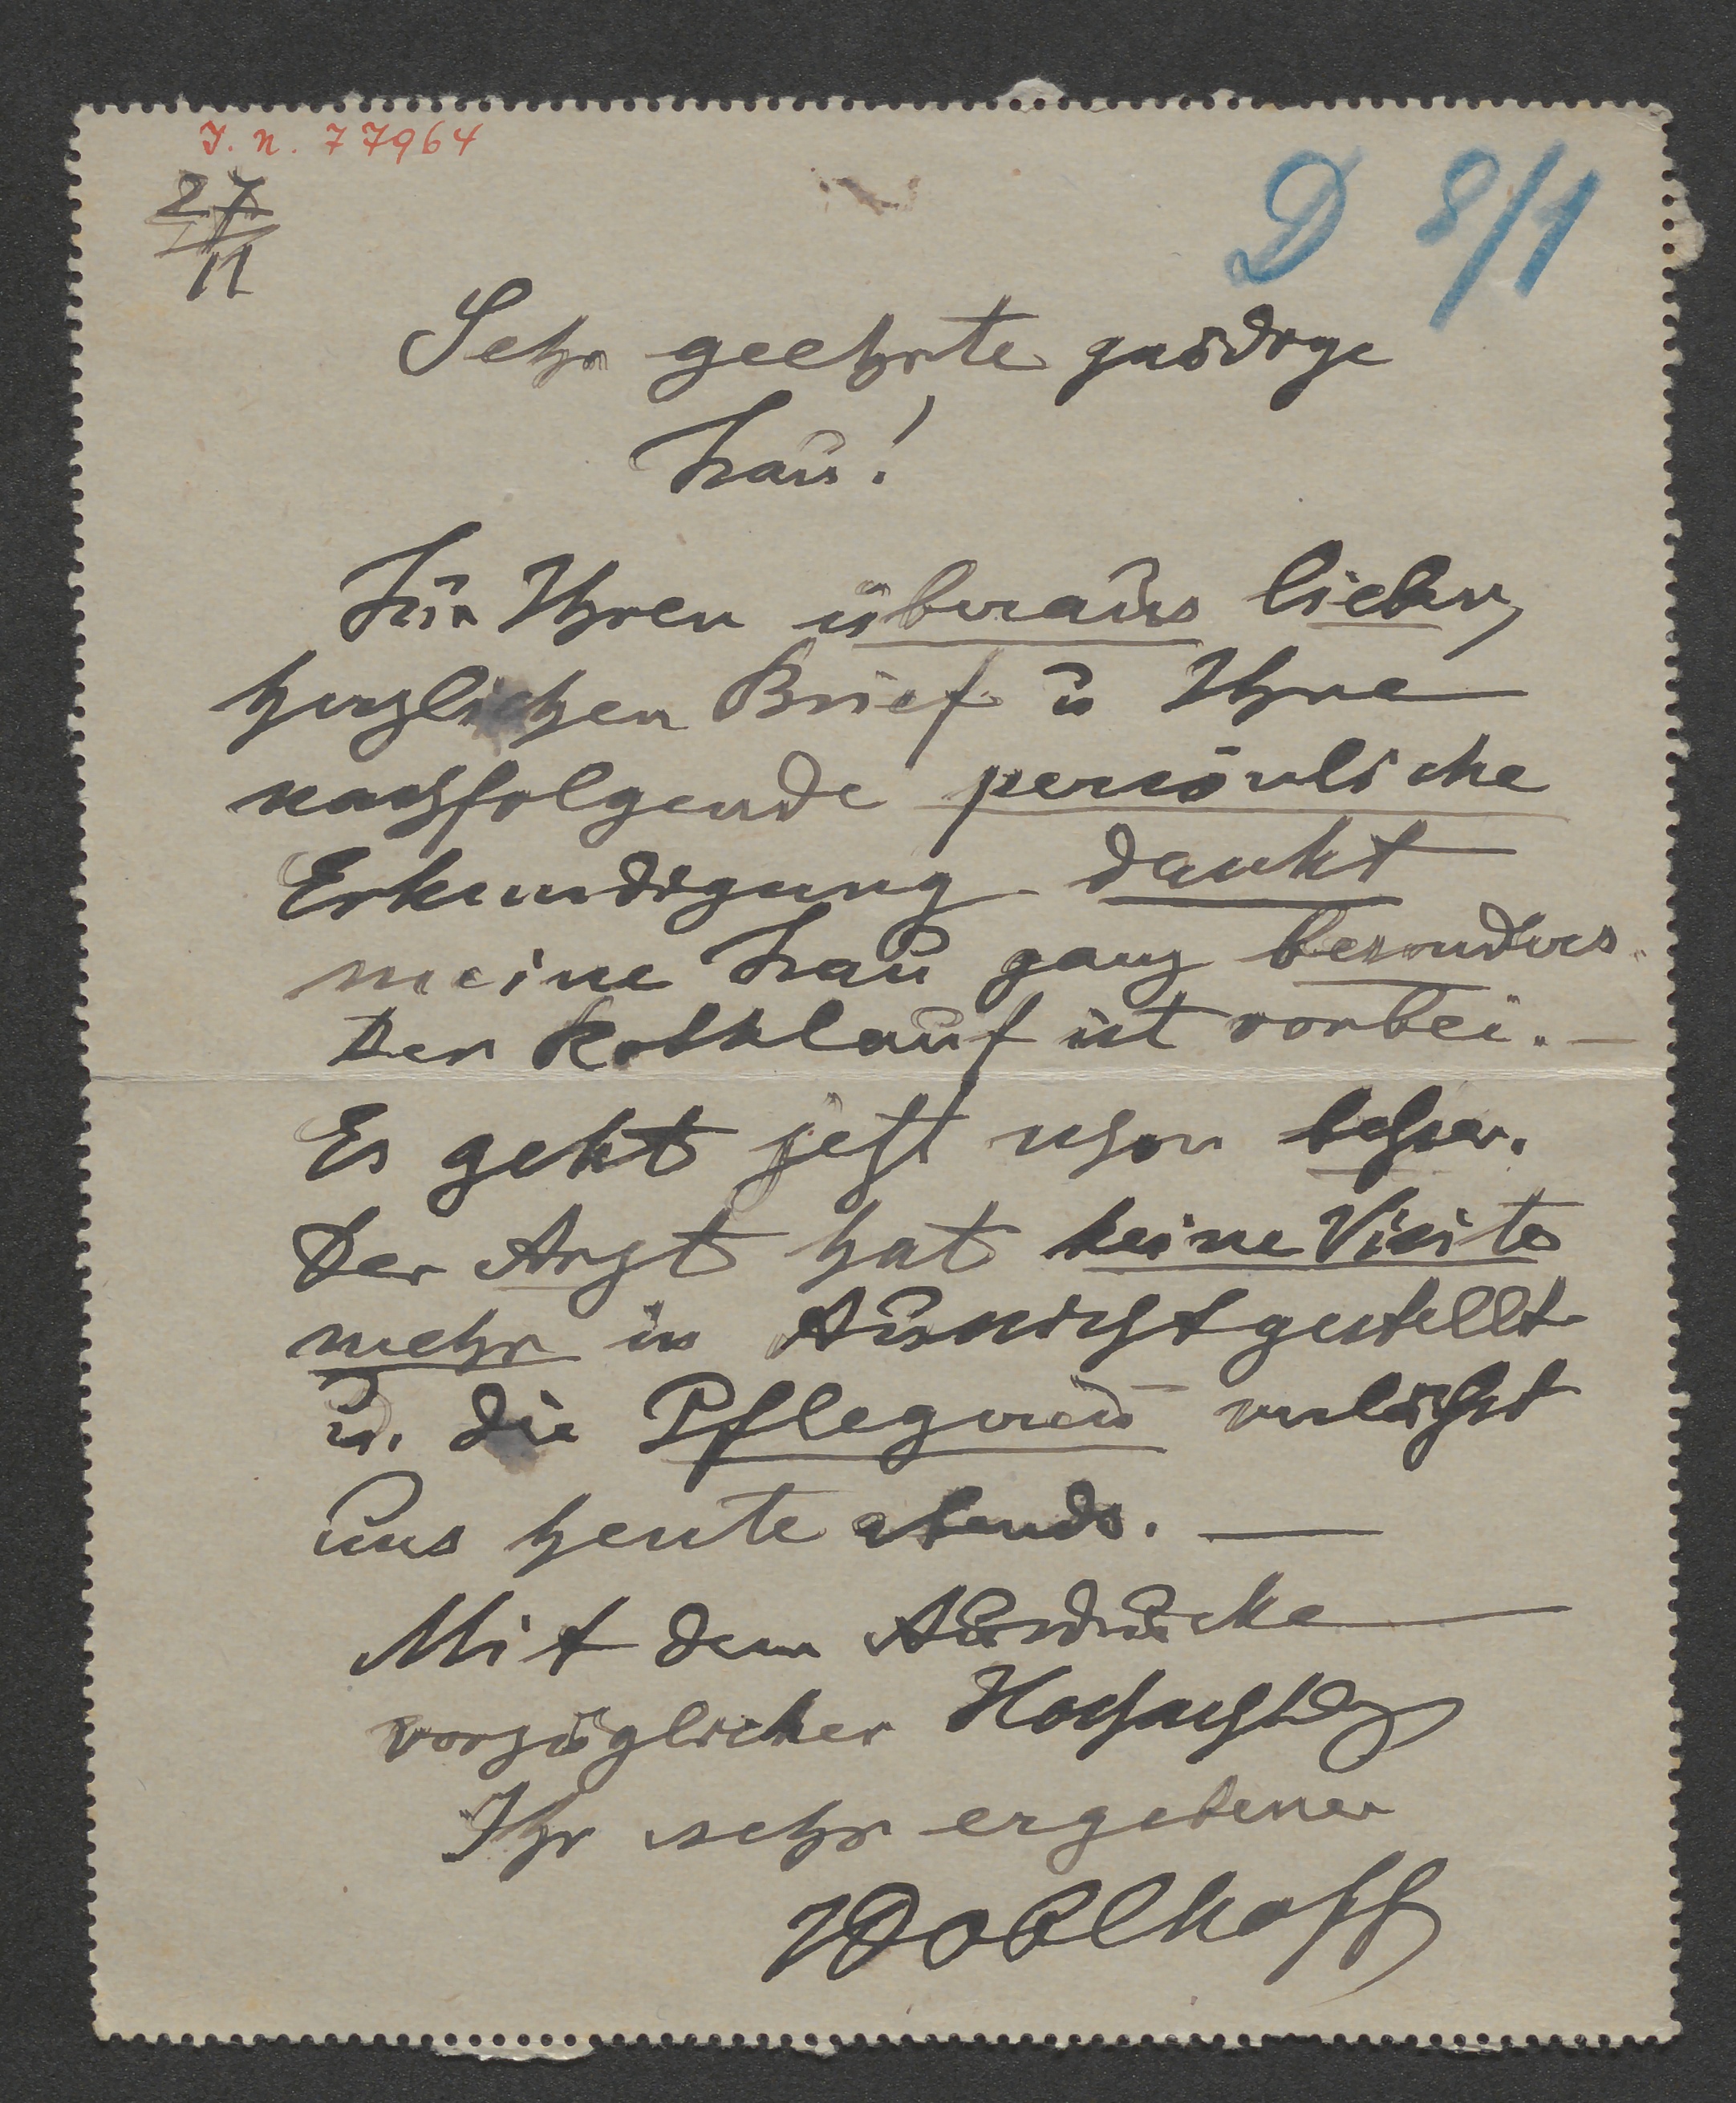 I. N. 77964
27
11
D 8/1
Sehr geehrte gnädige
Frau!
Für Ihren überaus lieben,
herzlichen Brief u Ihre
nachfolgende persönliche
Erkundigung dankt
meine Frau ganz besonders.
Der Rothlauf ist vorbei. —
Es geht jetzt schon besser.
Der Arzt hat keine Visite
mehr in Aussicht gestellt
u. die Pflegerin verlässt
uns heute abends. —
Mit dem Ausdrucke
vorzüglicher Hochachtg
Ihr sehr ergebener